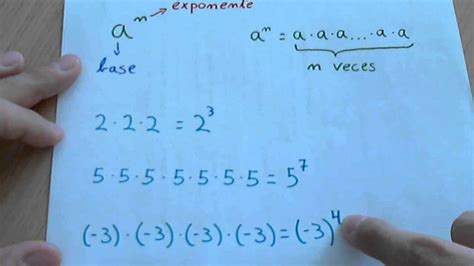 aⁿ → exponente
↓
base
aⁿ = a·a·a...·a·a
n veces
2·2·2 = 2³
5·5·5·5·5·5·5 = 5⁷
(-3)·(-3)·(-3)·(-3) = (-3)⁴